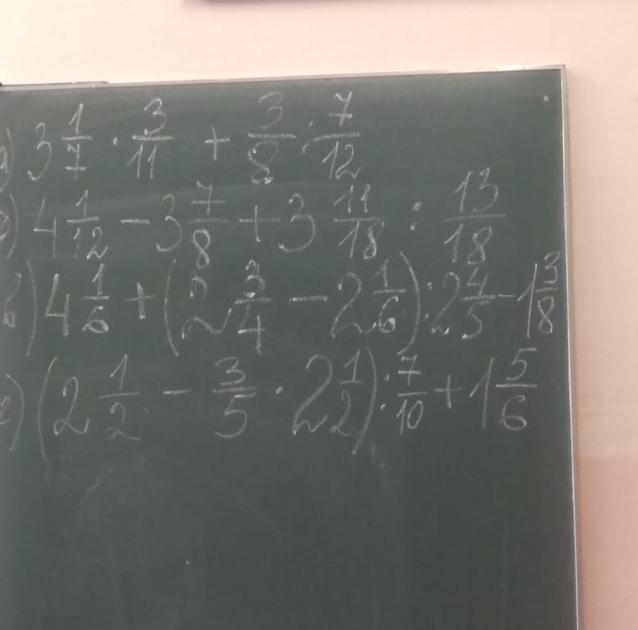 а) 3 1/7 · 3/11 + 3/8 : 7/12
б) 4 1/12 - 3 7/8 + 3 11/18 : 13/18
в) 4 1/6 + (2 3/4 - 2 1/6) : 2 4/5 - 1 3/8
г) (2 1/2 - 3/5 · 2 1/2) : 7/10 + 1 5/6